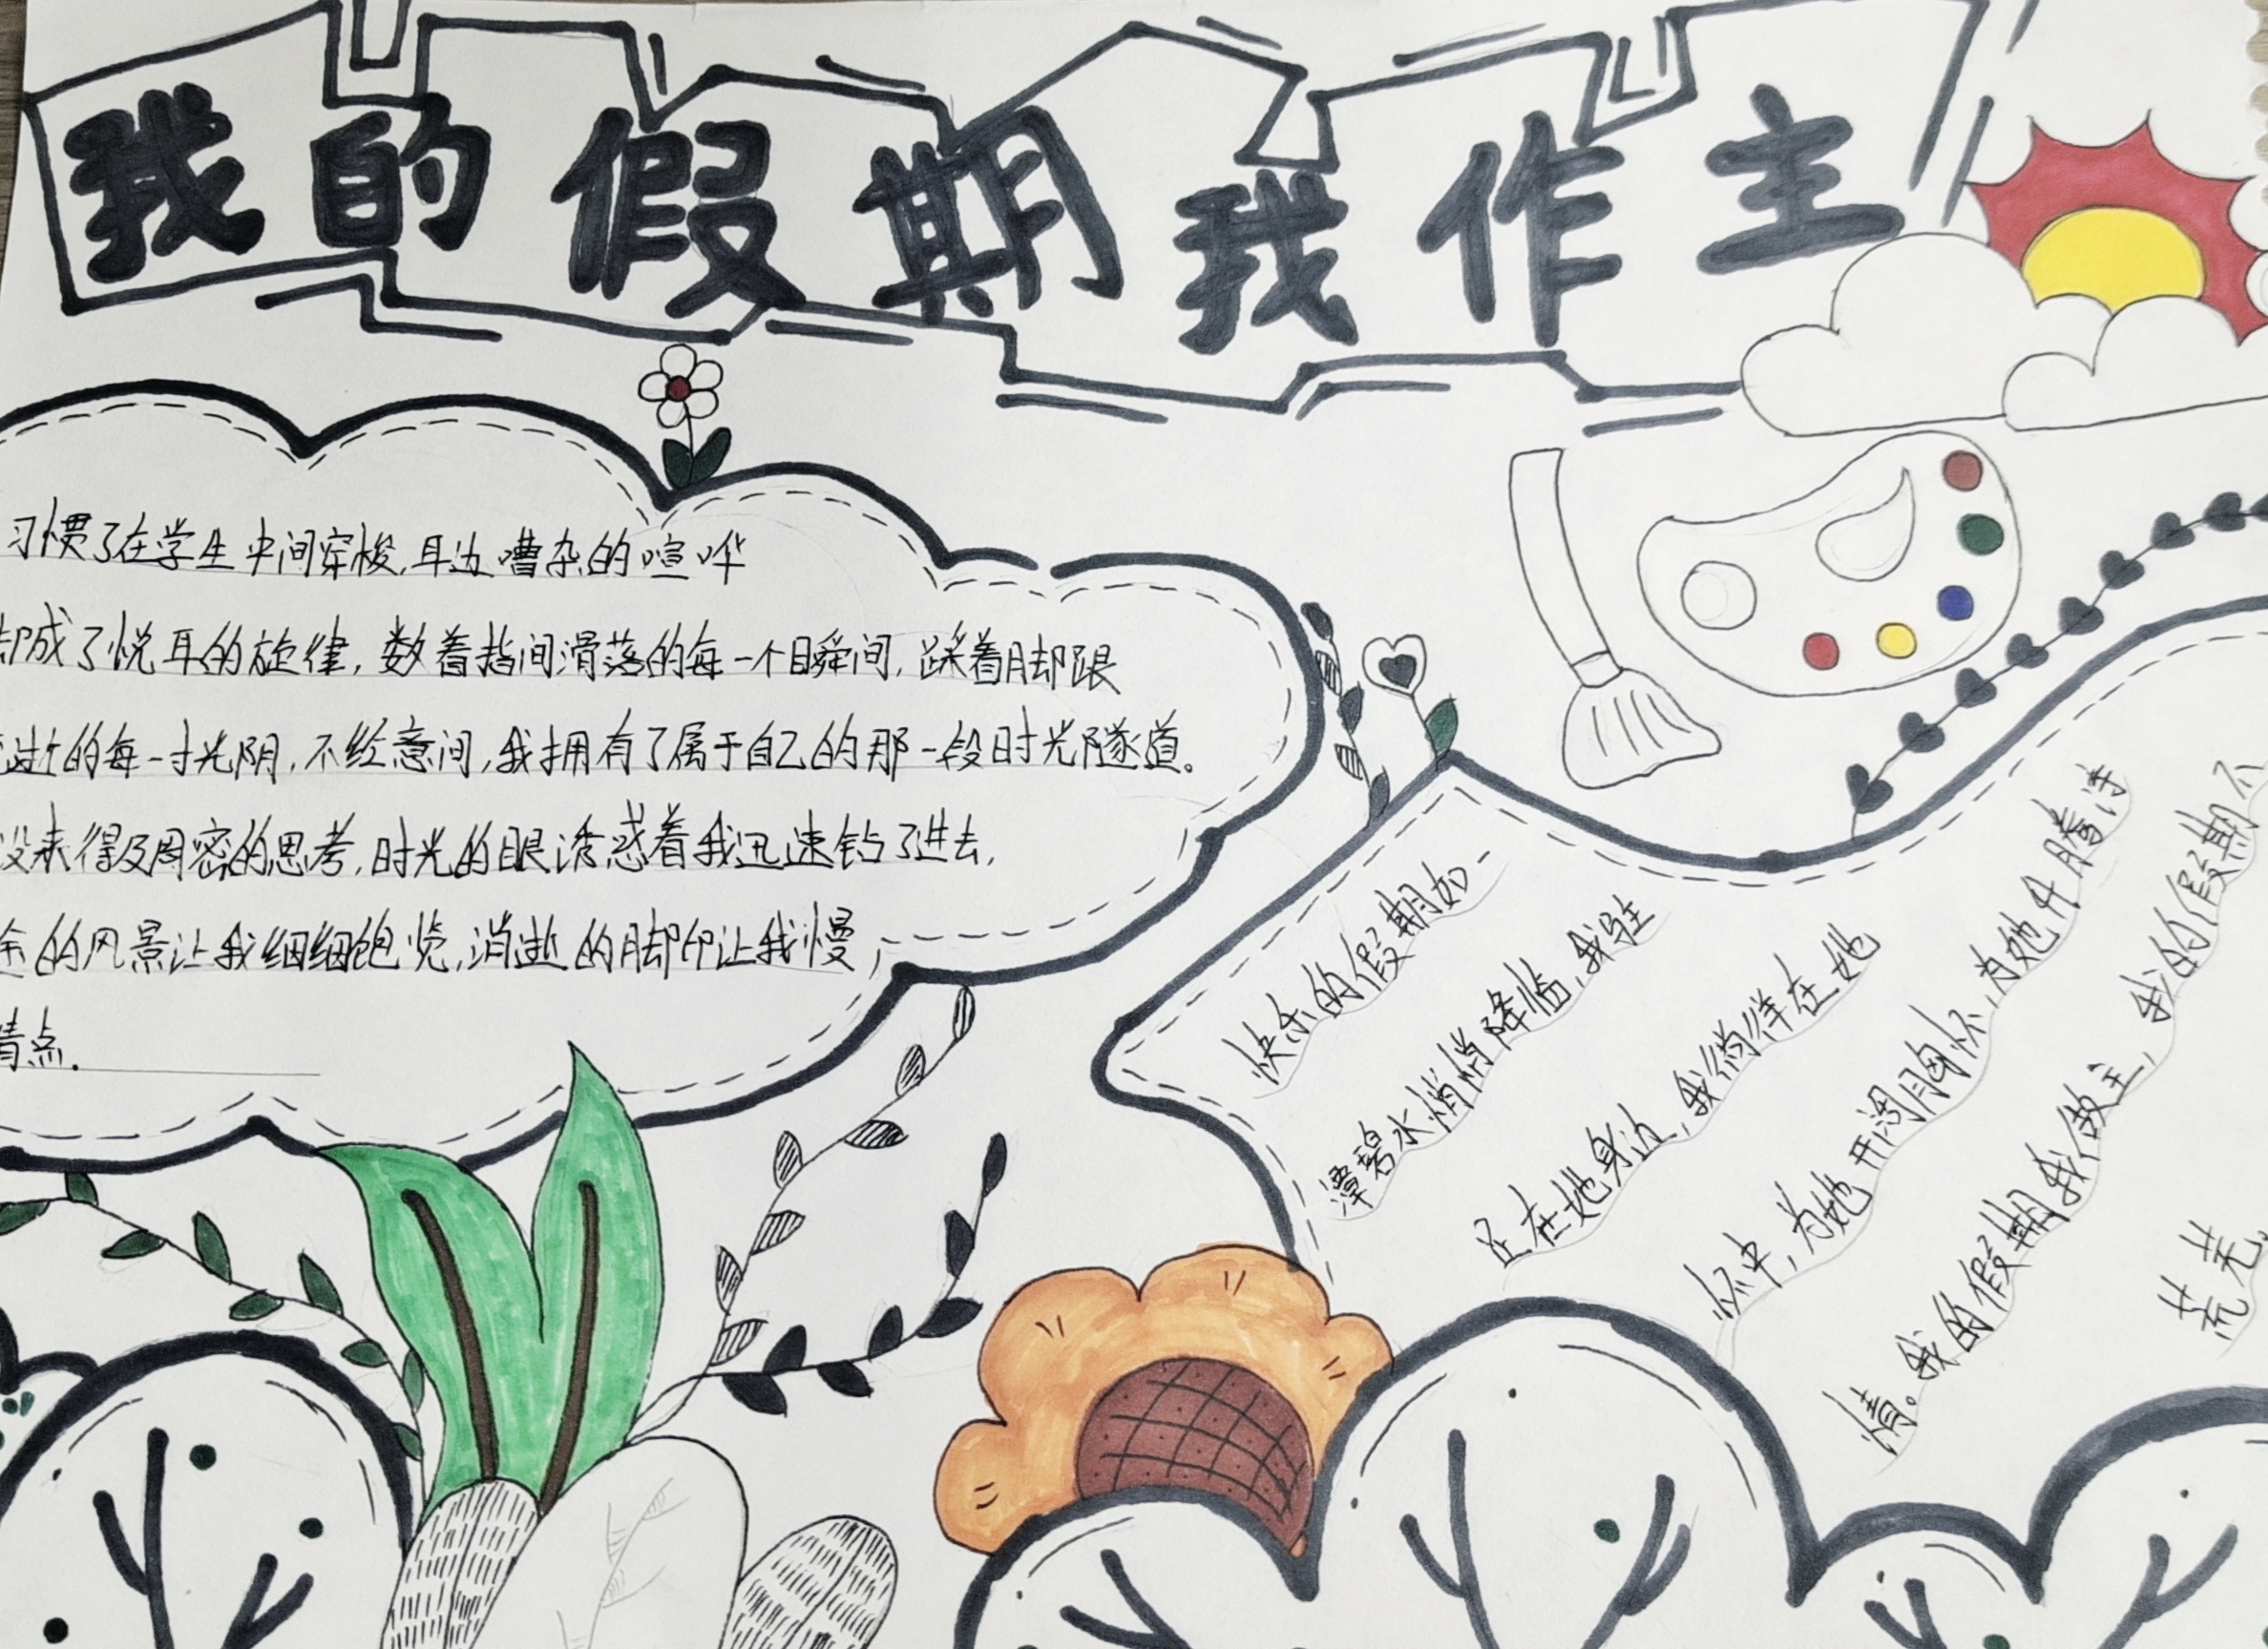 我的假期我作主
习惯了在学生中间穿梭,耳边嘈杂的喧哗
却成了悦耳的旋律,数着指间滑落的每一个瞬间,踩着脚跟
逝的每一寸光阴,不经意间,我拥有了属于自己的那一段时光隧道。
没来得及周密的思考,时光的眼诱惑着我迅速钻了进去,
的风景让我细细饱览,消逝的脚印让我慢
清点.
快乐的假期如一
潭碧水悄悄降临,我驻
足在她身边,我徜徉在她
怀中,为她开阔胸怀,为她升腾诗
情。我的假期我做主,我的假期不
荒芜